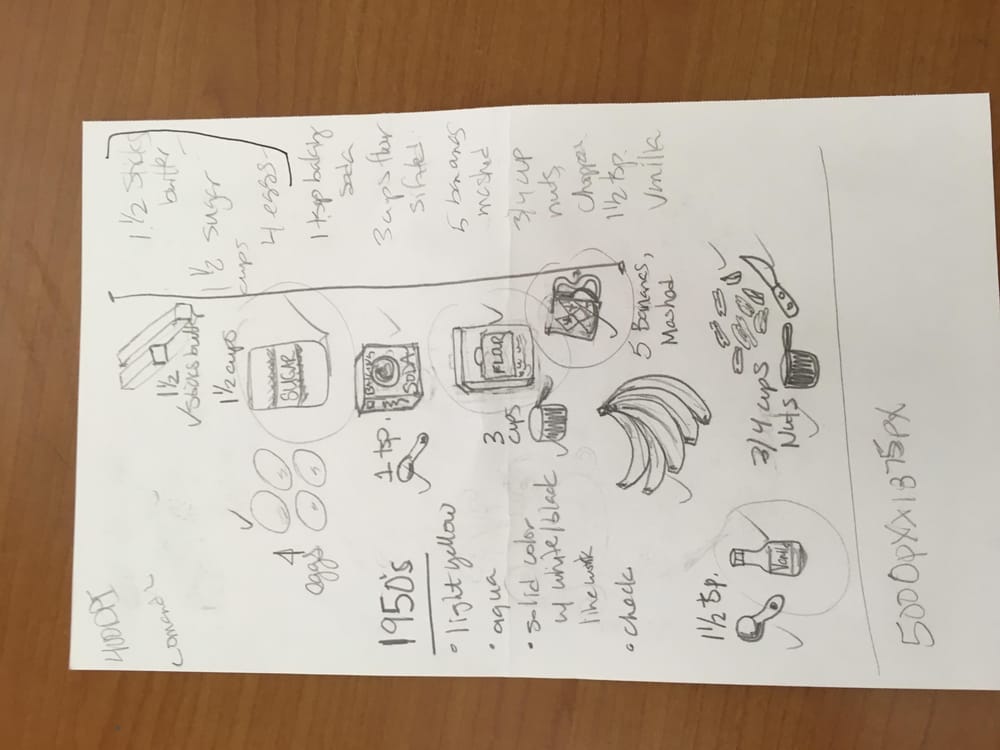 400DPI
1 1/2 sticks
butter
1 1/2 sugar
cups
4 eggs
1 tsp baking
soda
3 cups flour
sifted
5 bananas
mashed
3/4 cup
nuts,
chopped
1 1/2 tsp.
vanilla
1 1/2
sticks butter
1 1/2 cups
SUGAR
4
eggs
BAKING
SODA
1 tsp.
FLOR
3
cups
5 Bananas,
Mashed
1950's
• light yellow
• aqua
• solid color
w/ white/black
linework
• check
3/4 cups
Nuts
1 1/2 tsp.
5000px x 1875px